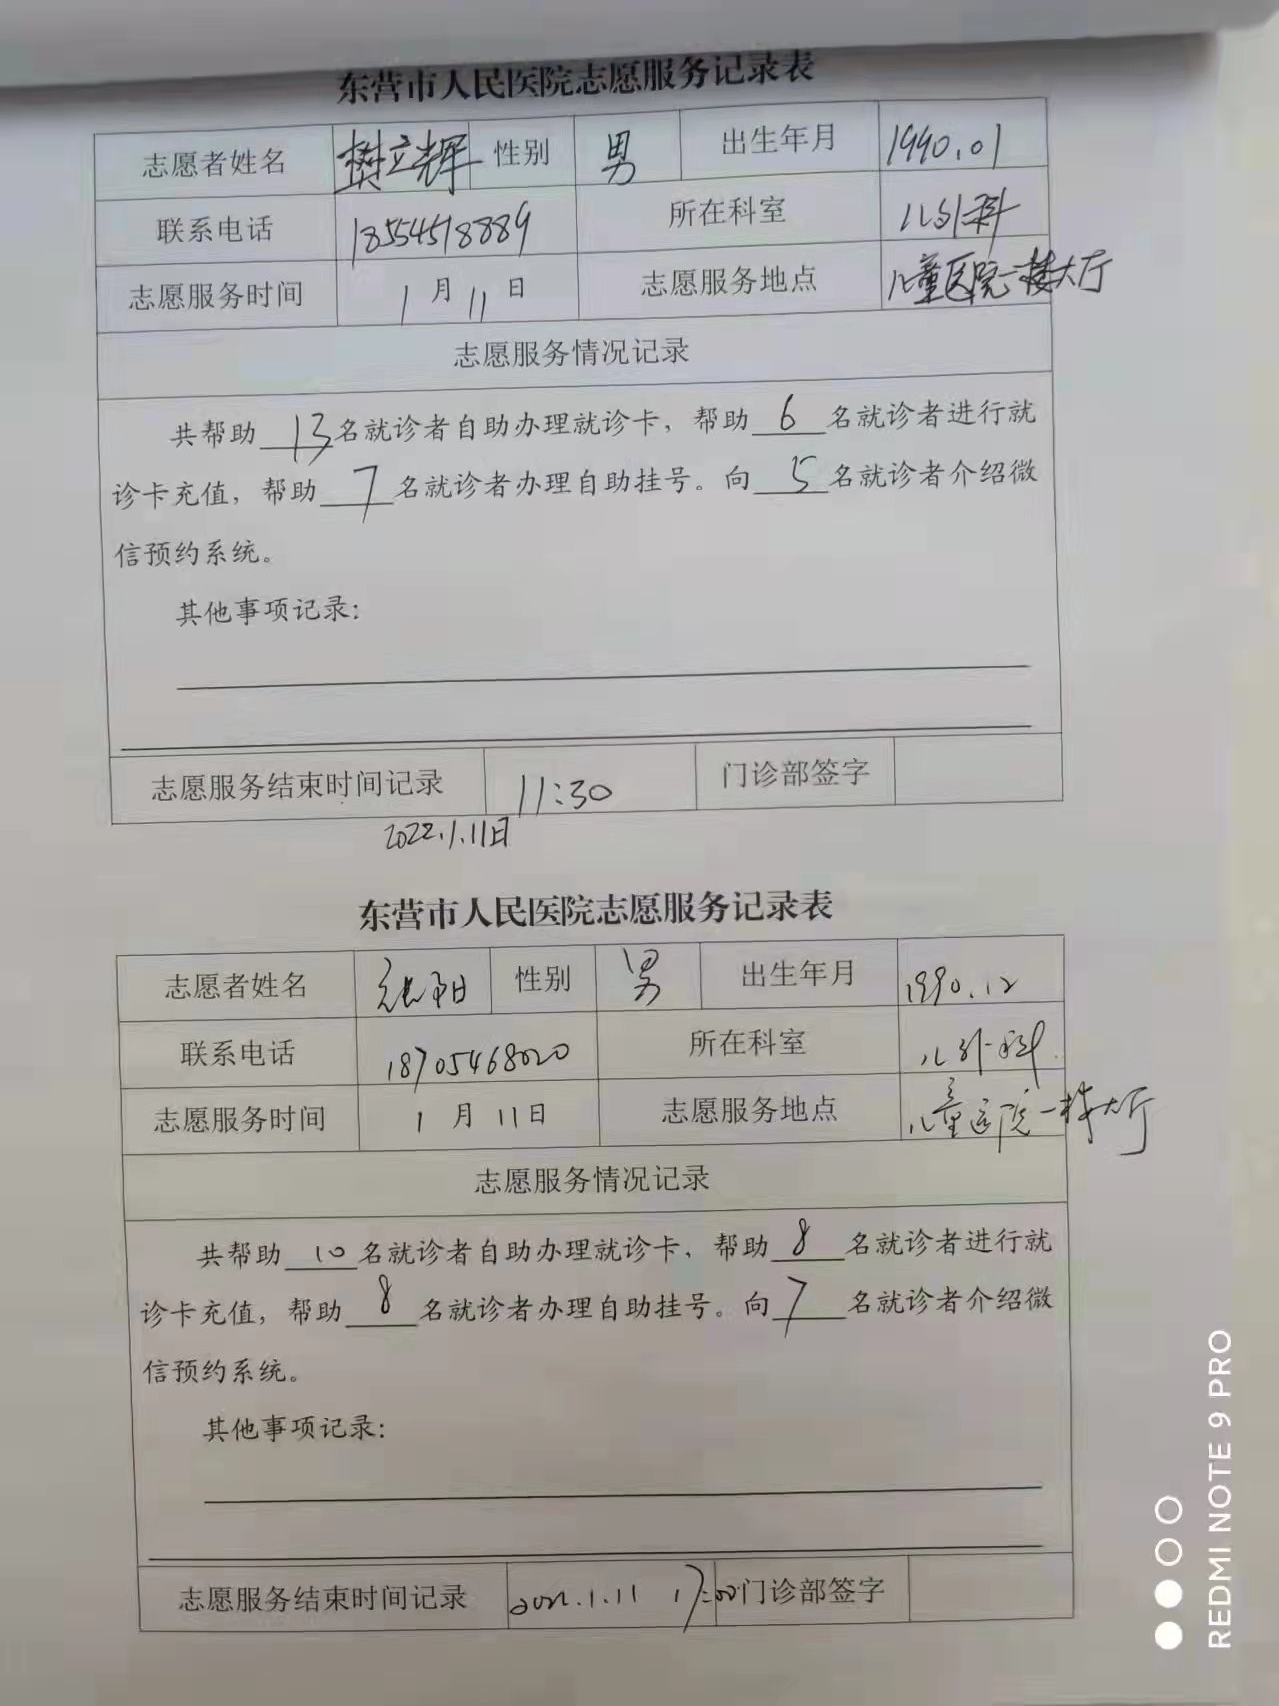 东营市人民医院志愿服务记录表
志愿者姓名 樊立辉 性别 男 出生年月 1990.01
联系电话 18554518889 所在科室 儿外科
志愿服务时间 1月11日 志愿服务地点 儿童医院一楼大厅
志愿服务情况记录
共帮助13名就诊者自助办理就诊卡，帮助6名就诊者进行就
诊卡充值，帮助7名就诊者办理自助挂号。向5名就诊者介绍微
信预约系统。
其他事项记录：
志愿服务结束时间记录 11:30 门诊部签字
2022.1.11日
东营市人民医院志愿服务记录表
志愿者姓名 性别 男 出生年月 1990.12
联系电话 18705468020 所在科室 儿外科
志愿服务时间 1月11日 志愿服务地点 儿童医院一楼大厅
志愿服务情况记录
共帮助10名就诊者自助办理就诊卡，帮助8名就诊者进行就
诊卡充值，帮助8名就诊者办理自助挂号。向7名就诊者介绍微
信预约系统。
其他事项记录：
志愿服务结束时间记录 2022.1.11 17:00 门诊部签字
REDMI NOTE 9 PRO